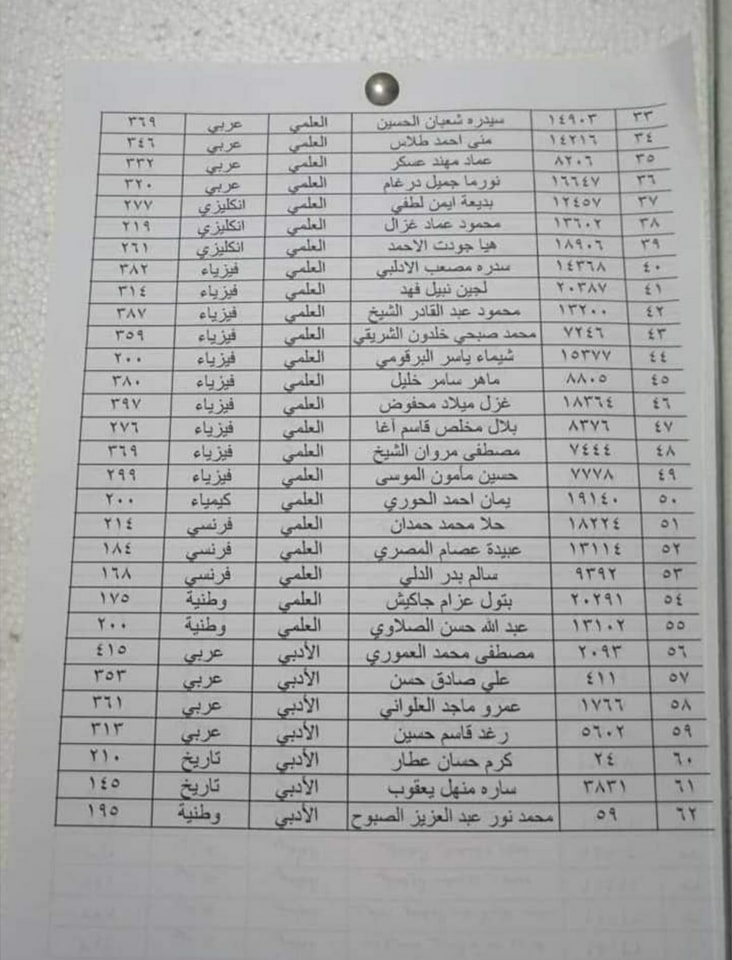 ٣٣ ١٤٩٠٣ سيدره شعبان الحسين العلمي عربي ٣٦٩
٣٤ ١٤٢١٦ منى احمد طلاس العلمي عربي ٣٤٦
٣٥ ٨٢٠٦ عماد مهند عسكر العلمي عربي ٣٣٢
٣٦ ١٦٦٤٧ نورما جميل درغام العلمي عربي ٣٢٠
٣٧ ١٢٤٥٧ بديعة ايمن لطفي العلمي انكليزي ٢٧٧
٣٨ ١٣٦٠٢ محمود عماد غزال العلمي انكليزي ٢١٩
٣٩ ١٨٩٠٦ هيا جودت الاحمد العلمي انكليزي ٢٦١
٤٠ ١٤٣٦٨ سدره مصعب الادلبي العلمي فيزياء ٣٨٢
٤١ ٢٠٣٨٧ لجين نبيل فهد العلمي فيزياء ٣١٤
٤٢ ١٣٢٠٠ محمود عبد القادر الشيخ العلمي فيزياء ٣٨٧
٤٣ ٧٢٤٦ محمد صبحي خلدون الشريقي العلمي فيزياء ٣٥٩
٤٤ ١٥٣٧٧ شيماء ياسر البرقومي العلمي فيزياء ٢٠٠
٤٥ ٨٨٠٥ ماهر سامر خليل العلمي فيزياء ٣٨٠
٤٦ ١٨٣٦٤ غزل ميلاد محفوض العلمي فيزياء ٣٩٧
٤٧ ٨٣٧٦ بلال مخلص قاسم آغا العلمي فيزياء ٢٧٦
٤٨ ٧٤٤٤ مصطفى مروان الشيخ العلمي فيزياء ٣٦٩
٤٩ ٧٧٧٨ حسين مأمون الموسى العلمي فيزياء ٢٩٩
٥٠ ١٩١٤٠ يمان احمد الحوري العلمي كيمياء ٢٠٠
٥١ ١٨٢٢٤ حلا محمد حمدان العلمي فرنسي ٢١٤
٥٢ ١٣١١٤ عبيدة عصام المصري العلمي فرنسي ١٨٤
٥٣ ٩٣٩٢ سالم بدر الدلي العلمي فرنسي ١٦٨
٥٤ ٢٠٢٩١ بتول عزام جاكيش العلمي وطنية ١٧٥
٥٥ ١٣١٠٢ عبد الله حسن الصلاوي العلمي وطنية ٢٠٠
٥٦ ٢٠٩٣ مصطفى محمد العموري الأدبي عربي ٤١٥
٥٧ ٤١١ علي صادق حسن الأدبي عربي ٣٥٣
٥٨ ١٧٦٦ عمرو ماجد العلواني الأدبي عربي ٣٦١
٥٩ ٥٦٠٢ رغد قاسم حسين الأدبي عربي ٣١٣
٦٠ ٢٤ كرم حسان عطار الأدبي تاريخ ٢١٠
٦١ ٣٨٣١ ساره منهل يعقوب الأدبي تاريخ ١٤٥
٦٢ ٥٩ محمد نور عبد العزيز الصبوح الأدبي وطنية ١٩٥